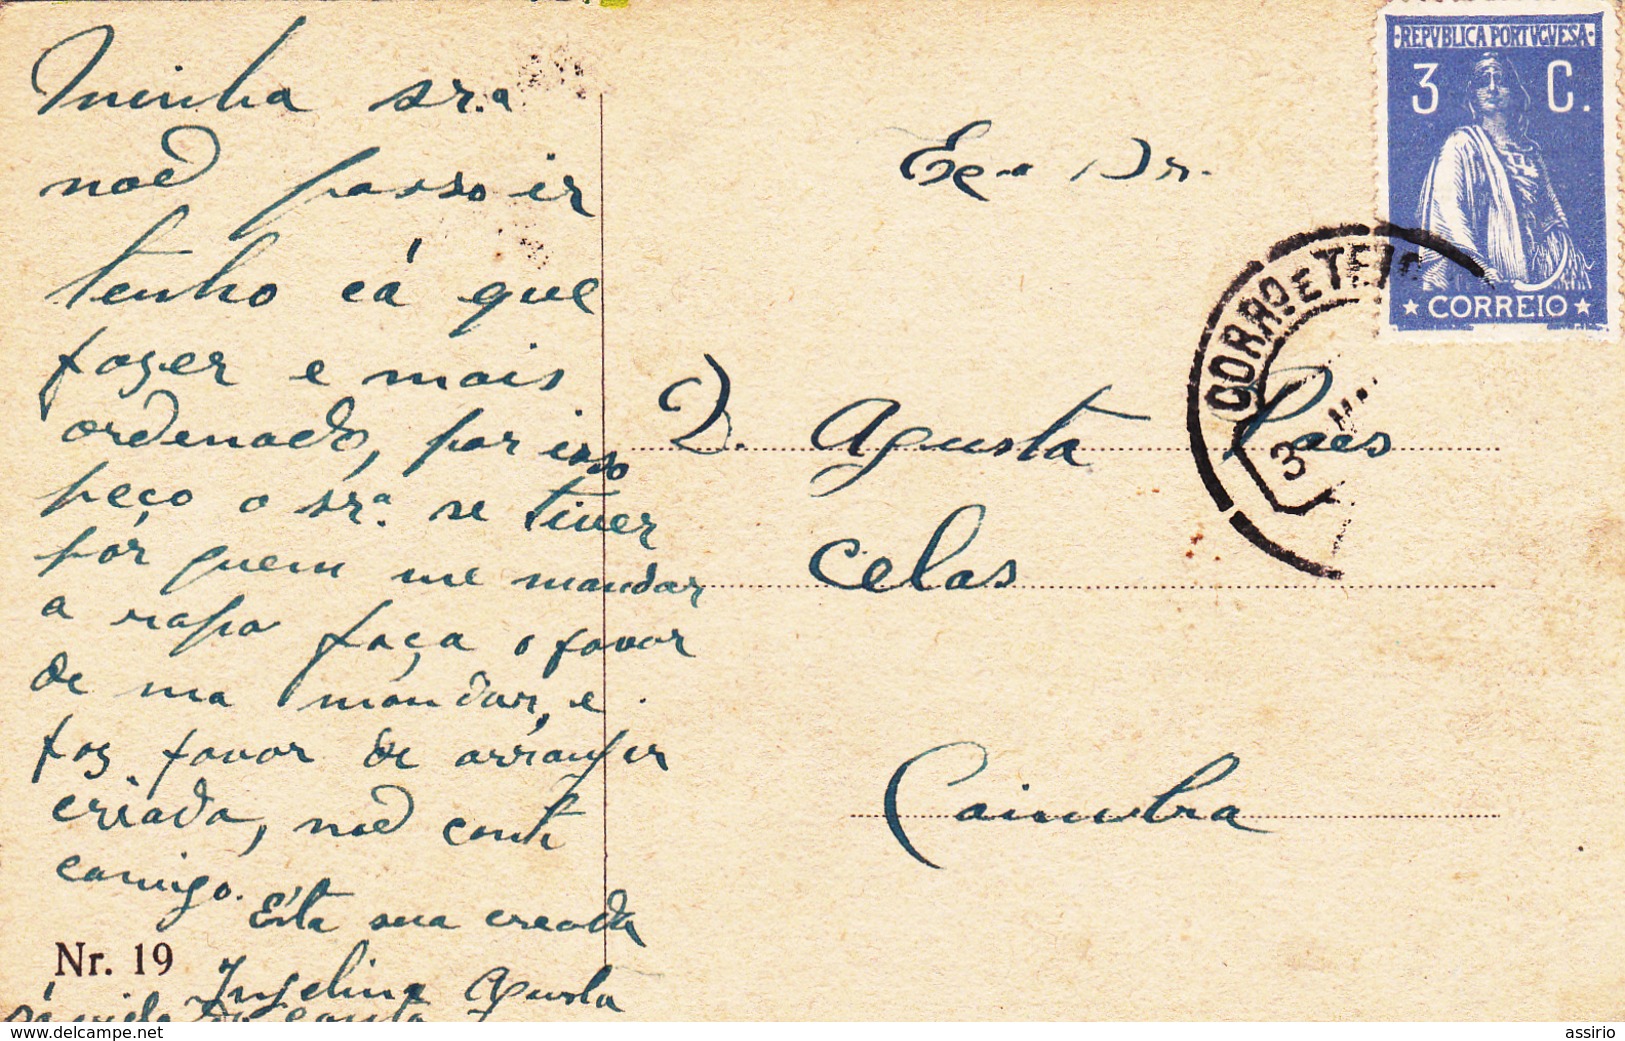 Minha sr.a
não posso ir
tenho cá que
fazer e mais
ordenado, por isso
peço o sr.a se tiver
pór quem me mandar
a rapa faça o favor
de ma mandar, e
faz favor de arranjar
criada, não conte
comigo.
Esta sua creada
Nr. 19
Agusta
REPVBLICA PORTVGVESA
3 C.
CORREIO
CORRO E TELE
3
Ex.a Sr.
D. Agusta Paes
Celas
Coimbra
www.delcampe.net
assirio